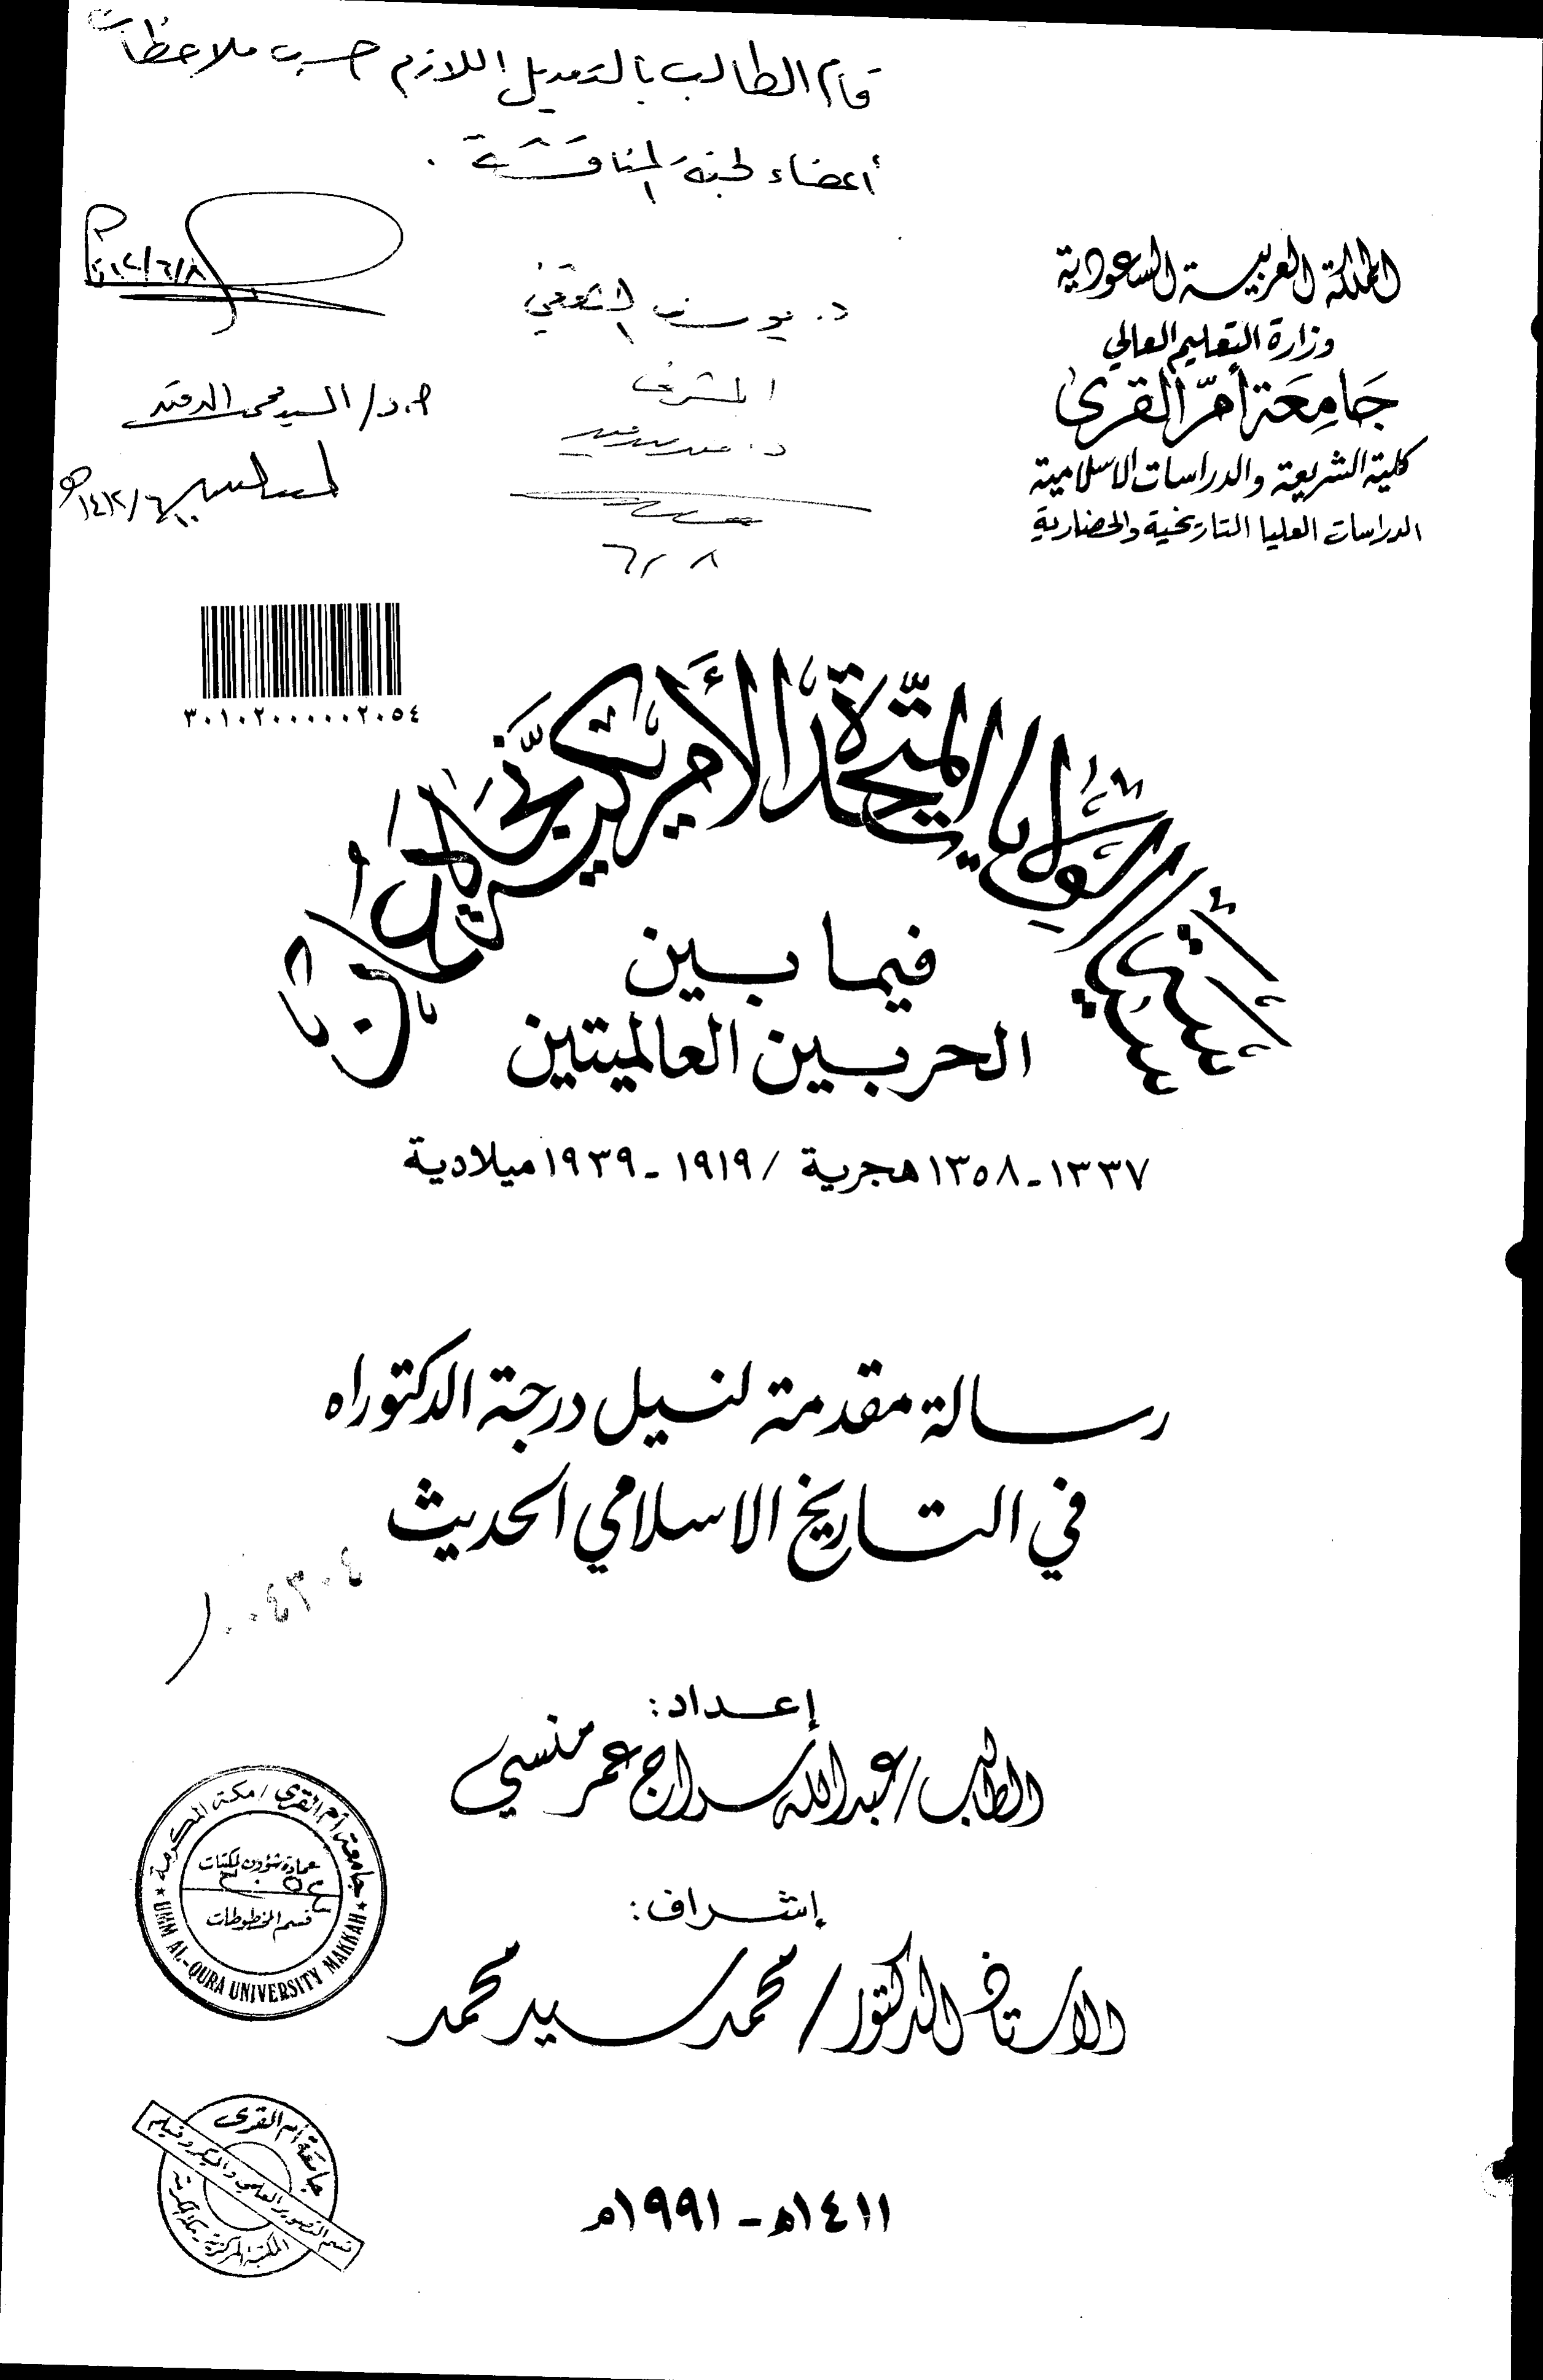 قام الطالب بالتعديل اللازم حسب ملاحظات
أعضاء لجنة المناقشة .
المملكة العربية السعودية
وزارة التعليم العالي
جَامِعَة أمّ القرى
كلية الشريعة والدراسات الاسلامية
الدراسات العليا التاريخية والحضارية
د. يوسف الثقفي
المشرف
أ.د/ السيد محمد الدقن
٦/٨
٣٠١٠٢٠٠٠٠٠٢٠٥٤
سياسة الولايات المتحدة الأمريكية
فيما بين
الحربين العالميتين
١٣٣٧-١٣٥٨ هجرية / ١٩١٩-١٩٣٩ ميلادية
رسالة مقدمة لنيل درجة الدكتوراه
في التاريخ الاسلامي الحديث
إعداد:
الطالب/ عبدالله سراج عمر منسي
إشراف:
الاستاذ الدكتور/ محمد سيد محمد
جامعة أم القرى / مكة المكرمة
عمادة شؤون المكتبات
قسم المخطوطات
UMM AL-QURA UNIVERSITY MAKKAH
جامعة أم القرى
قسم التصوير العلمي والميكروفيلم
المكتبة المركزية - مكة المكرمة
١٤١١هـ - ١٩٩١م